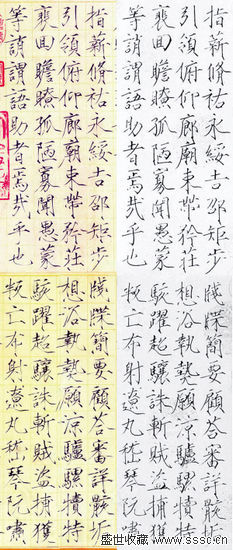 指薪脩祜永綏吉邵矩步
引領俯仰廊廟束帶矜莊
裵回瞻瞭孤陋寡聞愚蒙
等誚謂語助者焉哉乎也
指薪脩祜永綏吉邵矩步
引領俯仰廊廟束帶矜莊
裵回瞻瞭孤陋寡聞愚蒙
等誚謂語助者焉哉乎也
牋牒簡要顧答審詳骸垢
想浴執熱願涼驢騾犢特
駭躍超驤誅斬賊盜捕獲
叛亡布射遼丸嵇琴阮嘯
牋牒簡要顧答審詳骸垢
想浴執熱願涼驢騾犢特
駭躍超驤誅斬賊盜捕獲
叛亡布射遼丸嵇琴阮嘯
盛世收藏 www.sssc.cn